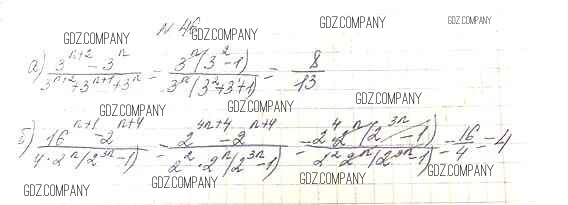 N 46
GDZ.COMPANY GDZ.COMPANY GDZ.COMPANY GDZ.COMPANY
а) (3^(n+2) - 3^n)/(3^(n+2) + 3^(n+1) + 3^n) = (3^n(3^2 - 1))/(3^n(3^2 + 3 + 1)) = 8/13
GDZ.COMPANY GDZ.COMPANY GDZ.COMPANY
б) (16^(n+1) - 2^(n+4))/(4·2^n(2^(3n) - 1)) = (2^(4n+4) - 2^(n+4))/(2^2·2^n(2^(3n) - 1)) = (2^4·2^n(2^(3n) - 1))/(2^2 2^n(2^(3n) - 1)) = 16/4 = 4
GDZ.COMPANY GDZ.COMPANY GDZ.COMPANY GDZ.COMPANY